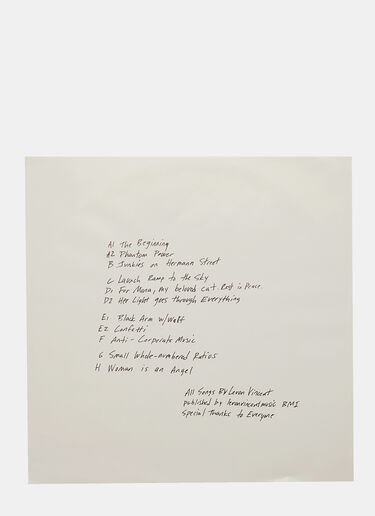 A1 The Beginning
A2 Phantom Power
B Junkies on Hermann Street
C Launch Ramp to the Sky
D1 For Mona, my beloved cat Rest in Peace.
D2 Her Light goes through Everything
E1 Black Arm w/Wolf
E2 Confetti
F Anti-Corporate Music
G Small Whole-numbered Ratios
H Woman is an Angel
All Songs BY Levon Vincent
published by levonvincentmusic BMI
Special Thanks to Everyone